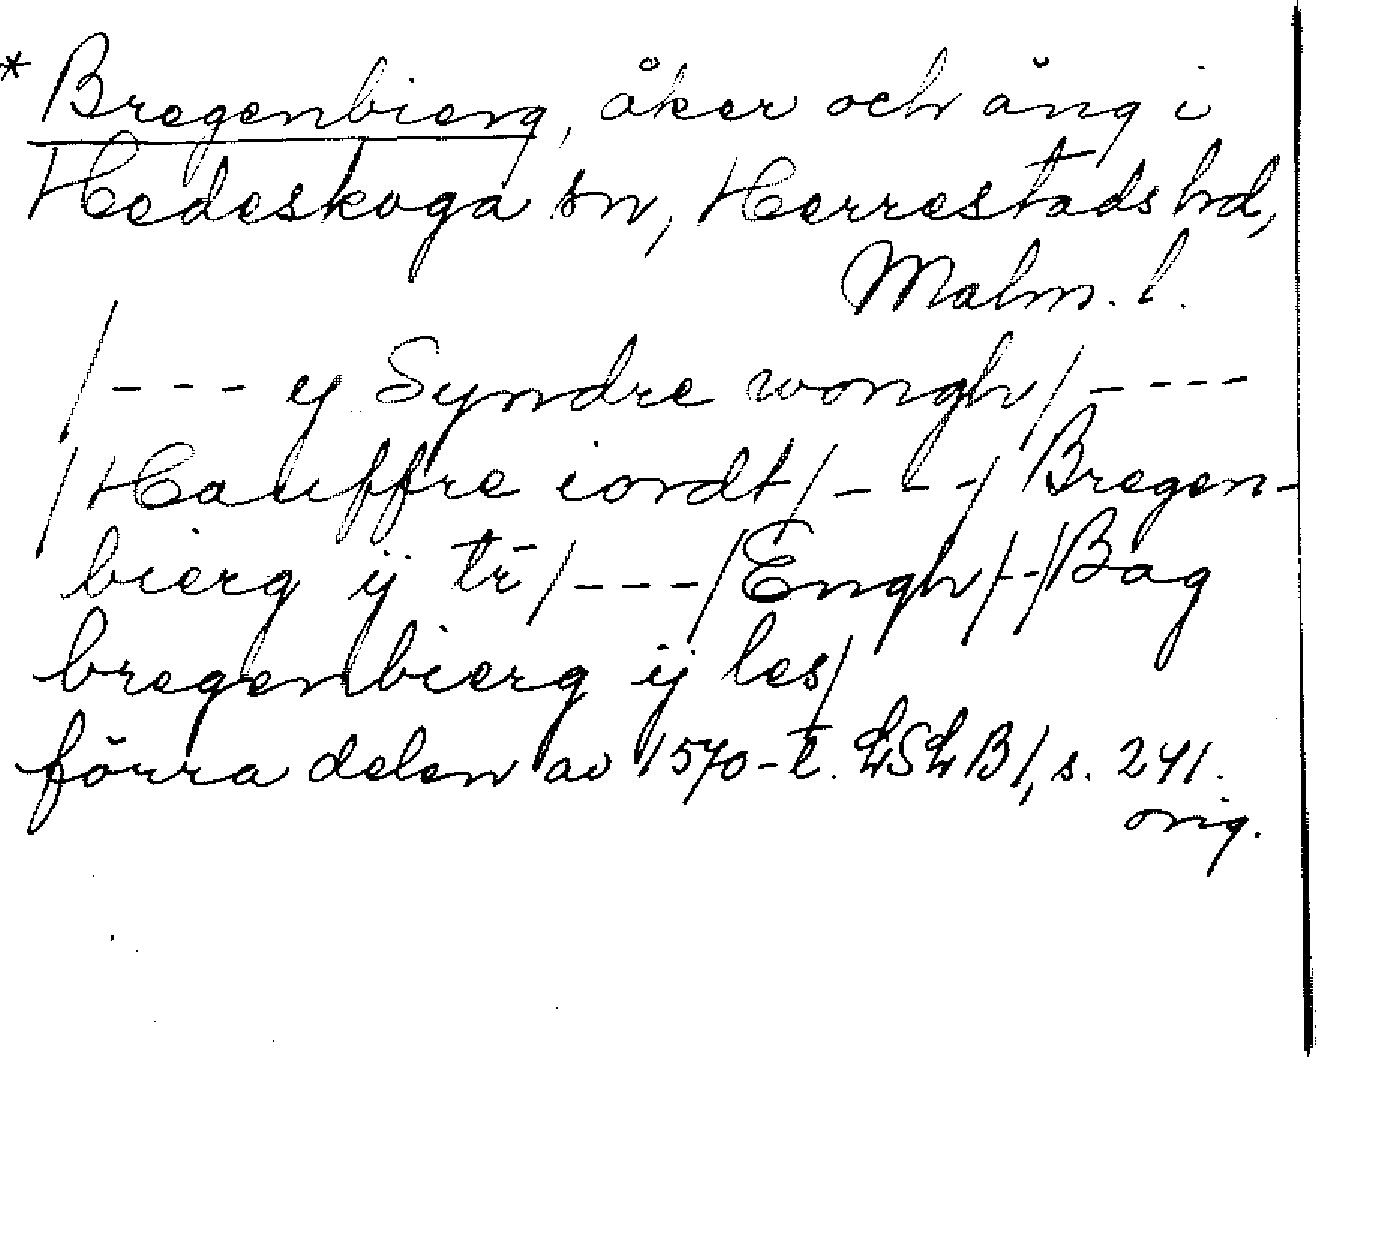 * Bregenbierg, åker och äng i
Hedeskoga sn, Herrestads hd,
Malm. l.
/--- y Syndre wongh/----
/Hauffre iordt/---/ Bregen-
bierg ij tr̄/---/Engh/-/Bag
bregenbierg ij les/
förra delen av 1570-t. LSLB1, s. 241.
orig.